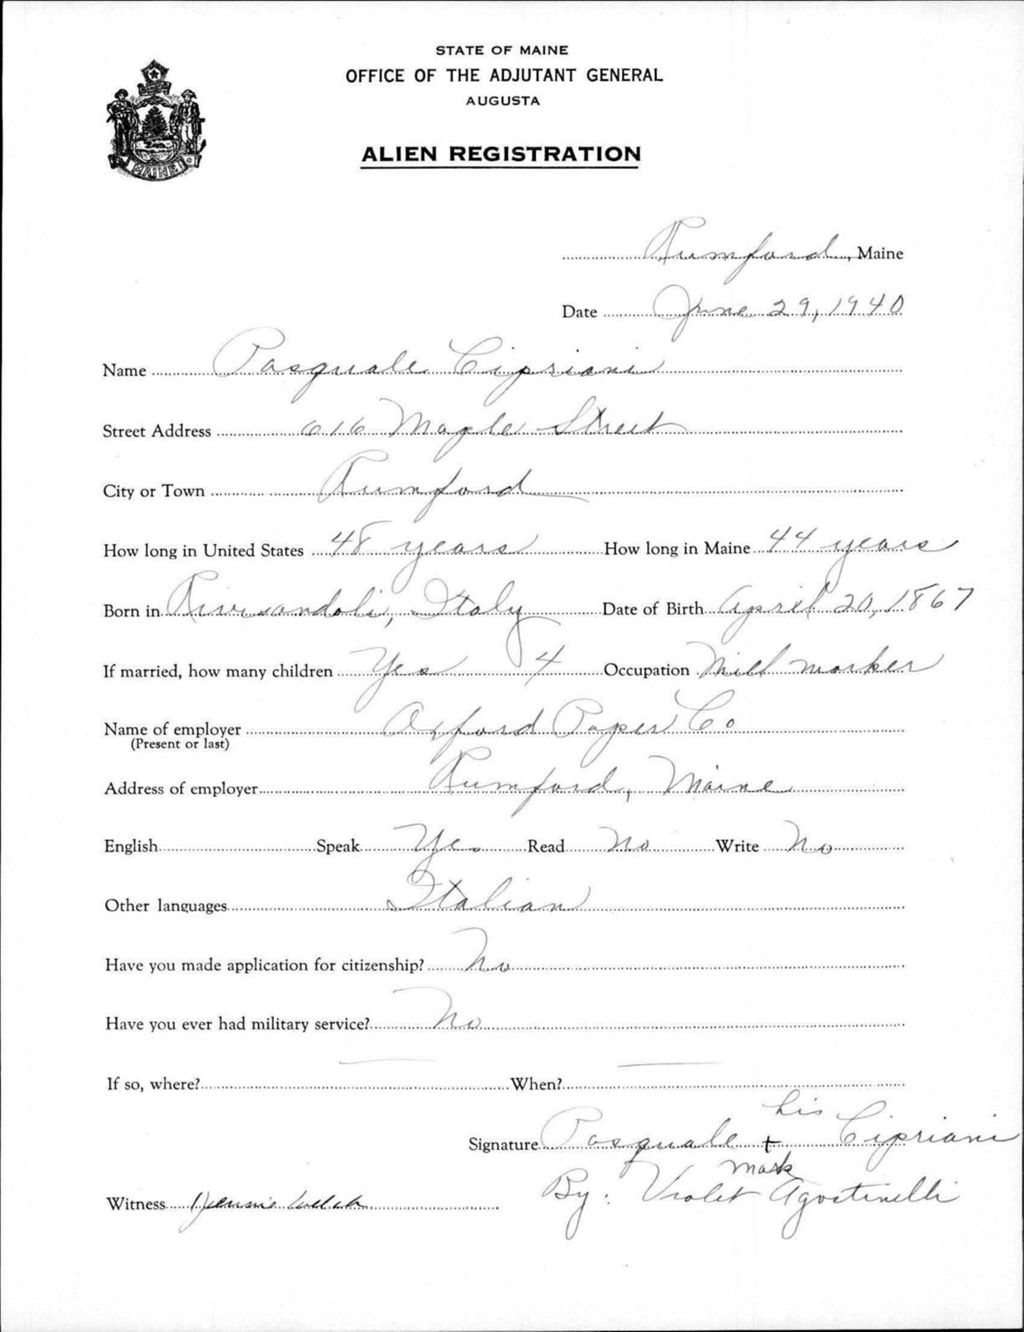 STATE OF MAINE
OFFICE OF THE ADJUTANT GENERAL
AUGUSTA
ALIEN REGISTRATION
MAINE
Rumford, Maine
Date June 29, 1940
Name Pasquale Cipriani
Street Address 616 Maple Street
City or Town Rumford
How long in United States 48 years How long in Maine 44 years
Born in Rivisandoli, Italy Date of Birth April 20, 1867
If married, how many children Yes 4 Occupation Mill worker
Name of employer Oxford Paper Co
(Present or last)
Address of employer Rumford, Maine
English Speak Yes Read No Write No
Other languages Italian
Have you made application for citizenship? No
Have you ever had military service? No
If so, where? — When? —
his
Signature Pasquale + Cipriani
mark
By: Violet Agostinelli
Witness Jennie Welch